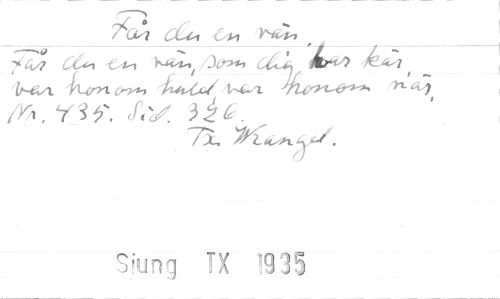 Får du en vän.
Får du en vän, som dig har kär,
var honom huld, var honom när,
Nr. 435. Sid. 326.
Tx. Wrangel.
Sjung TX 1935